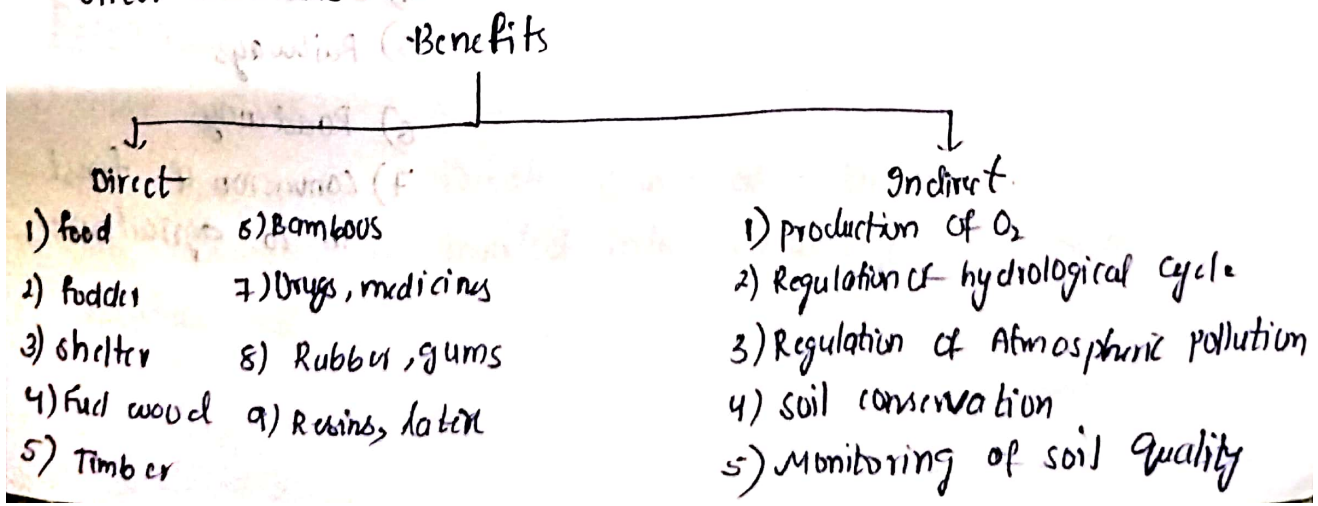 Benefits
Direct
1) food
2) fodder
3) shelter
4) Fuel wood
5) Timber
6) Bamboos
7) Drugs, medicines
8) Rubber, gums
9) Resins, latex
Indirect
1) production of O₂
2) Regulation of hydrological cycle
3) Regulation of Atmospheric pollution
4) soil conservation
5) Monitoring of soil quality